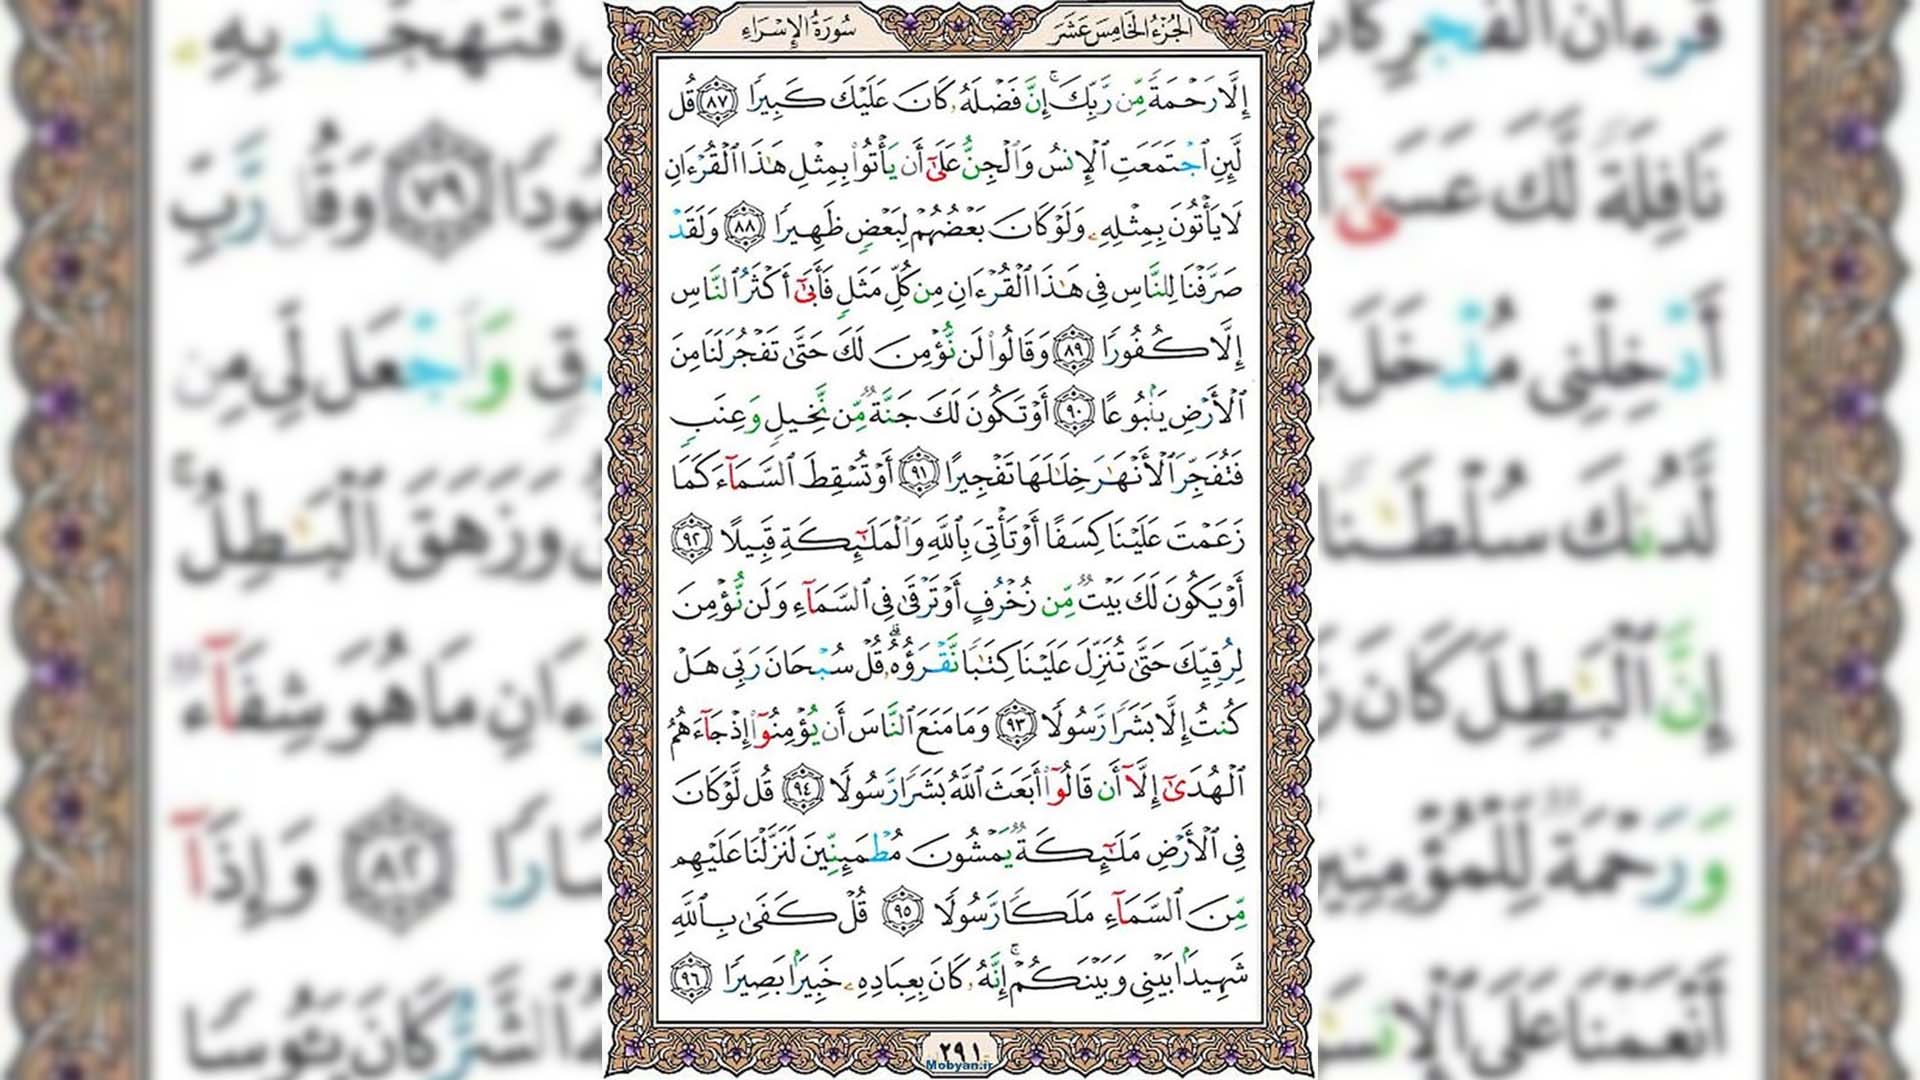 الجُزْءُ الخَامِسَ عَشَرَ
سُورَةُ الإِسْرَاءِ
إِلَّا رَحْمَةً مِّن رَّبِّكَ ۚ إِنَّ فَضْلَهُۥ كَانَ عَلَيْكَ كَبِيرًا ﴿٨٧﴾ قُل
لَّئِنِ ٱجْتَمَعَتِ ٱلْإِنسُ وَٱلْجِنُّ عَلَىٰٓ أَن يَأْتُوا۟ بِمِثْلِ هَٰذَا ٱلْقُرْءَانِ
لَا يَأْتُونَ بِمِثْلِهِۦ وَلَوْ كَانَ بَعْضُهُمْ لِبَعْضٍ ظَهِيرًا ﴿٨٨﴾ وَلَقَدْ
صَرَّفْنَا لِلنَّاسِ فِى هَٰذَا ٱلْقُرْءَانِ مِن كُلِّ مَثَلٍ فَأَبَىٰٓ أَكْثَرُ ٱلنَّاسِ
إِلَّا كُفُورًا ﴿٨٩﴾ وَقَالُوا۟ لَن نُّؤْمِنَ لَكَ حَتَّىٰ تَفْجُرَ لَنَا مِنَ
ٱلْأَرْضِ يَنۢبُوعًا ﴿٩٠﴾ أَوْ تَكُونَ لَكَ جَنَّةٌ مِّن نَّخِيلٍ وَعِنَبٍ
فَتُفَجِّرَ ٱلْأَنْهَٰرَ خِلَٰلَهَا تَفْجِيرًا ﴿٩١﴾ أَوْ تُسْقِطَ ٱلسَّمَآءَ كَمَا
زَعَمْتَ عَلَيْنَا كِسَفًا أَوْ تَأْتِىَ بِٱللَّهِ وَٱلْمَلَٰٓئِكَةِ قَبِيلًا ﴿٩٢﴾
أَوْ يَكُونَ لَكَ بَيْتٌ مِّن زُخْرُفٍ أَوْ تَرْقَىٰ فِى ٱلسَّمَآءِ وَلَن نُّؤْمِنَ
لِرُقِيِّكَ حَتَّىٰ تُنَزِّلَ عَلَيْنَا كِتَٰبًا نَّقْرَؤُهُۥ ۗ قُلْ سُبْحَانَ رَبِّى هَلْ
كُنتُ إِلَّا بَشَرًا رَّسُولًا ﴿٩٣﴾ وَمَا مَنَعَ ٱلنَّاسَ أَن يُؤْمِنُوٓا۟ إِذْ جَآءَهُمُ
ٱلْهُدَىٰٓ إِلَّآ أَن قَالُوٓا۟ أَبَعَثَ ٱللَّهُ بَشَرًا رَّسُولًا ﴿٩٤﴾ قُل لَّوْ كَانَ
فِى ٱلْأَرْضِ مَلَٰٓئِكَةٌ يَمْشُونَ مُطْمَئِنِّينَ لَنَزَّلْنَا عَلَيْهِم
مِّنَ ٱلسَّمَآءِ مَلَكًا رَّسُولًا ﴿٩٥﴾ قُلْ كَفَىٰ بِٱللَّهِ
شَهِيدًۢا بَيْنِى وَبَيْنَكُمْ ۚ إِنَّهُۥ كَانَ بِعِبَادِهِۦ خَبِيرًۢا بَصِيرًا ﴿٩٦﴾
٢٩١
Mobyan.ir